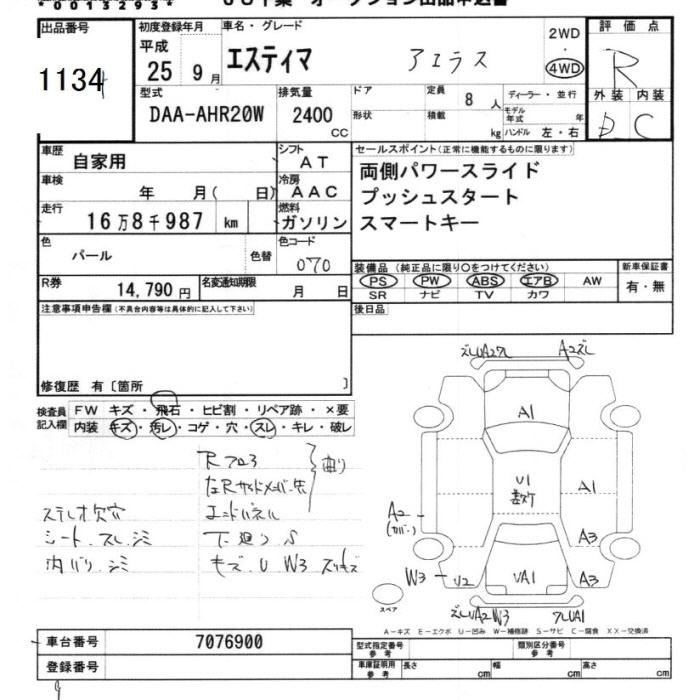 *00132935*
出品番号
1134
初度登録年月
平成
25 9月
車名・グレード
エスティマ
アエラス
2WD
・
4WD
評価点
R
外装 内装
D C
型式
DAA-AHR20W
排気量
2400
cc
ドア
形状
定員
8 人
積載
kg
ディーラー・並行
モデル年式 年
ハンドル 左・右
車歴
自家用
シフト
AT
車検
年 月( 日)
冷房
AAC
走行
16万8千987 km
燃料
ガソリン
色
パール
色替
色コード
070
R券
14,790 円
名変通知期限
月 日
セールスポイント(正常に機能するものに限ります)
両側パワースライド
プッシュスタート
スマートキー
装備品 (純正品に限り〇をつけてください)
PS PW ABS エアB AW
SR ナビ TV カワ
新車保証書
有・無
後日品
注意事項申告欄 (不具合内容等は具体的に記入して下さい)
修復歴 有〔箇所 〕
検査員記入欄
FW キズ・飛石・ヒビ割・リペア跡・×要
内装 キズ・汚レ・コゲ・穴・スレ・キレ・破レ
ステレオ欠穴
シート スレ シミ
内バリ シミ
エンドパネル
キズ U W3
曲り
A2
A1
U1
A1
A2
(カバー)
A3
W3
U2
UA1
A3
スペア
A-キズ E-エクボ U-凹み W-補修跡 S-サビ C-腐食 XX-交換済
車台番号
7076900
登録番号
型式指定番号
参考
類別区分番号
参考
車庫証明用
参考
長さ cm
幅 cm
高さ cm